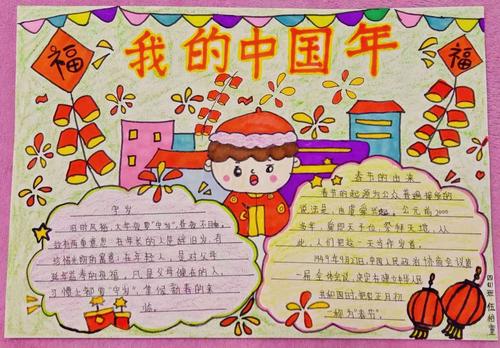 我的中国年
福
福
守岁
旧时民俗,大年夜要"守岁",昼夜不眠。
这有两重意思:年长的人是辞旧岁,有
珍惜光阴的寓意;年轻人,是对父母
延年益寿的祝福,凡是父母健在的人,
习惯上都要"守岁",等候新春的来
临。
春节的由来
春节的起源为公众普遍接受的
说法是,由虞舜兴起。公元前2000
多年,舜即天子位,祭拜天地,从
此,人们把这一天当作岁首。
1949年9月27日,中国人民政治协商会议第
一届全体会议,决定在建立中华人民
共和国时,把农历正月初
一称为"春节"。
四(1)班